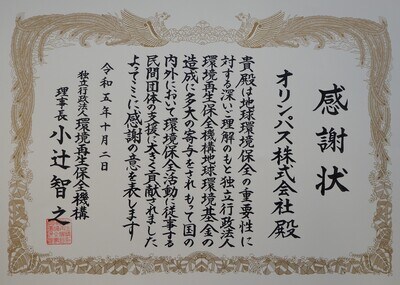 感謝状
オリンパス株式会社殿
貴殿は地球環境保全の重要性に
対する深いご理解のもと独立行政法人
環境再生保全機構地球環境基金の
造成に多大の寄与をされもって国の
内外において環境保全活動に従事する
民間団体の支援に大きく貢献されました
よってここに感謝の意を表します
令和五年十月二日
独立行政法人環境再生保全機構
理事長 小辻智之